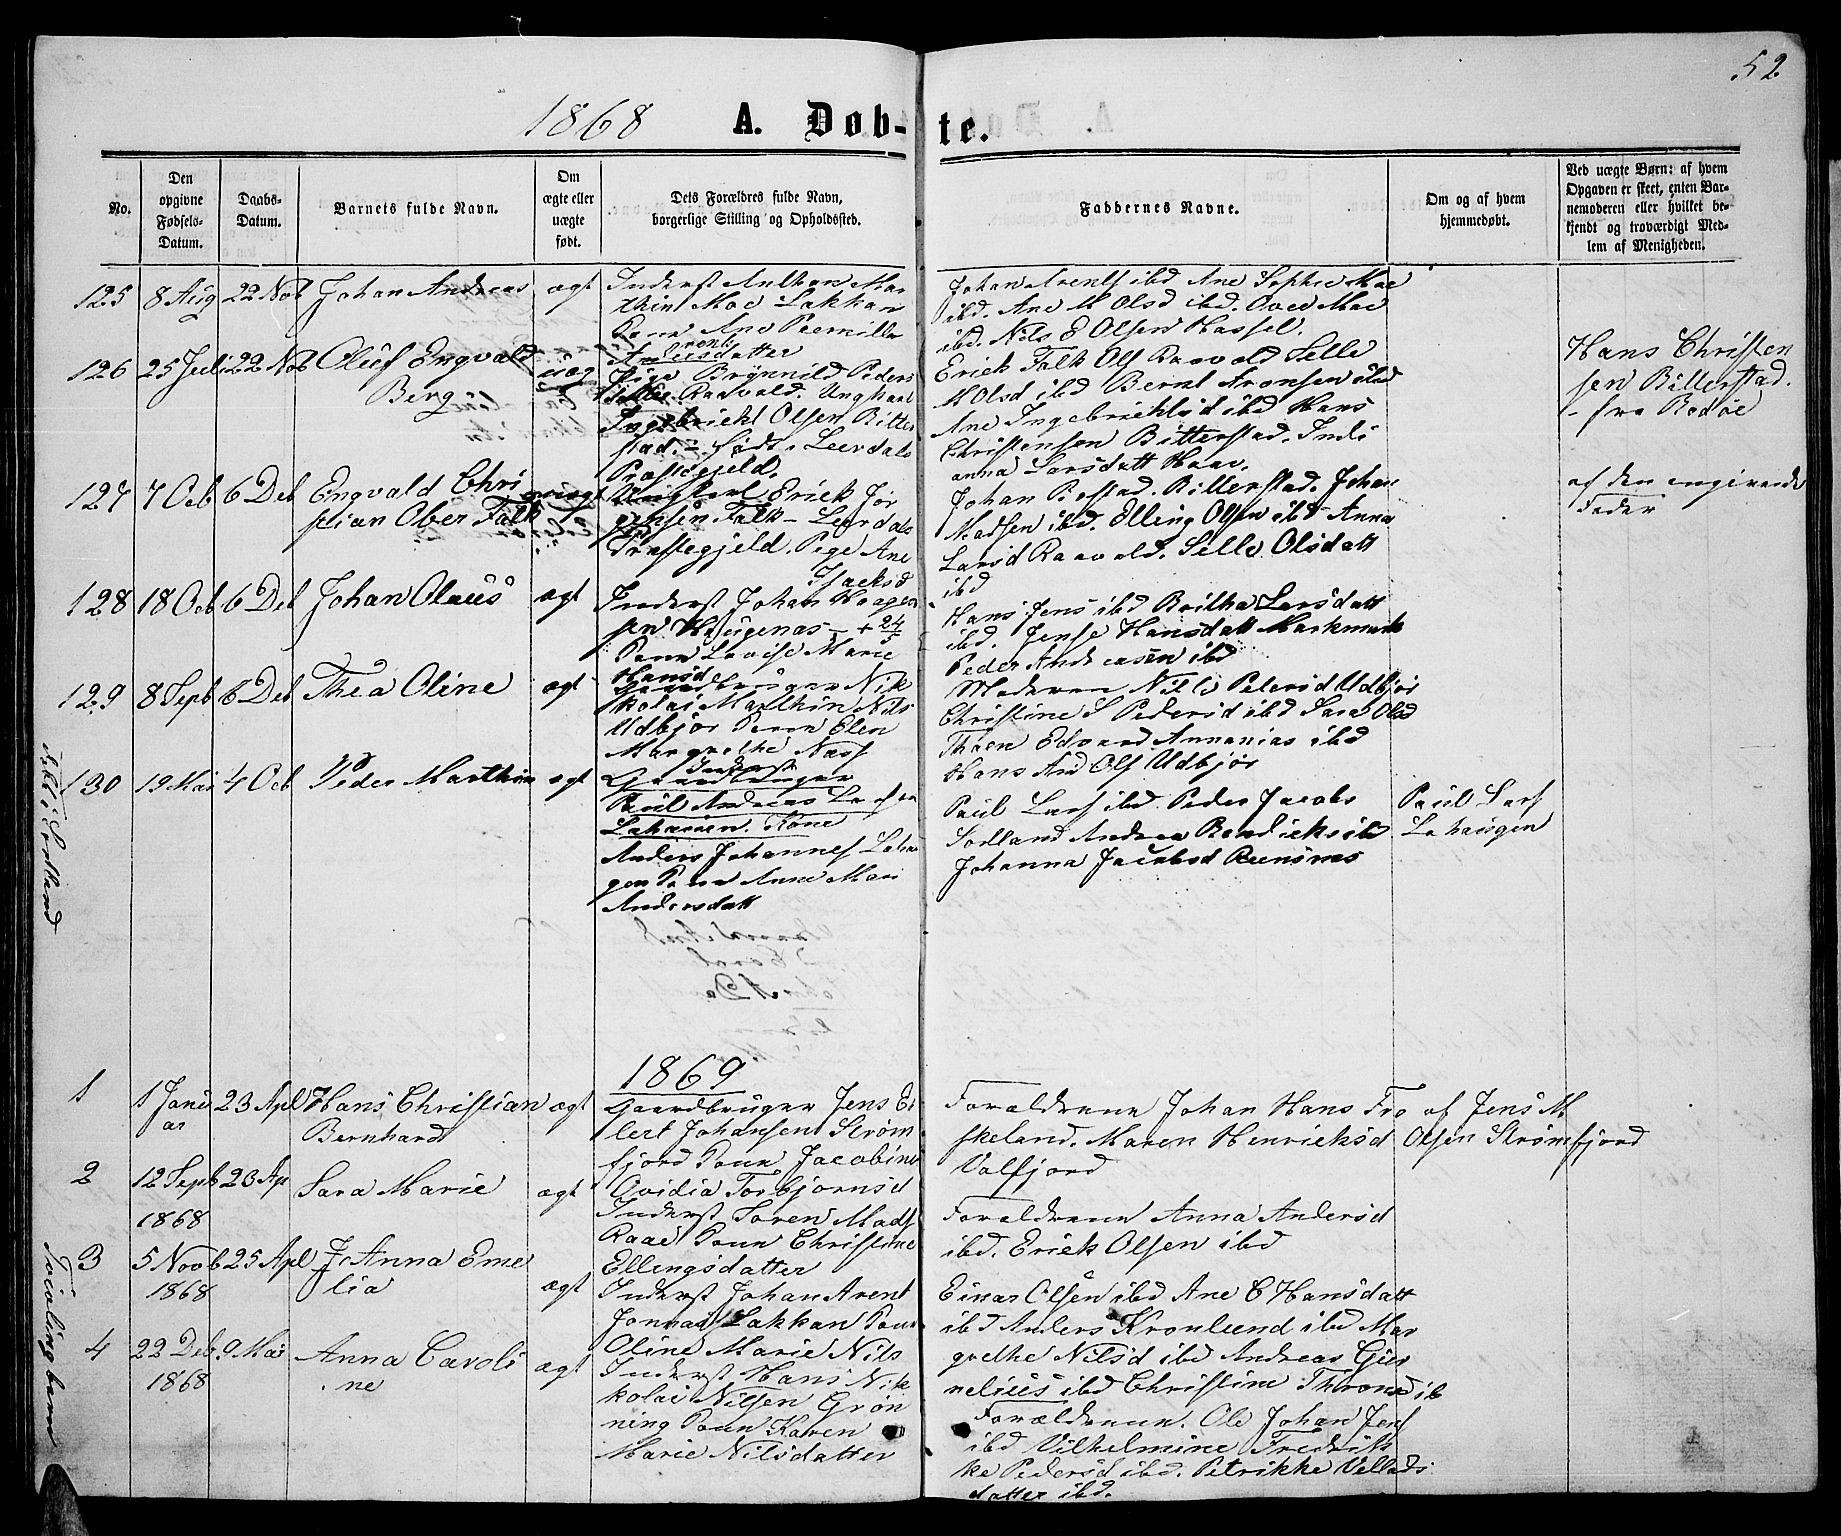 52
1868 A. Døb-te.
No.
Den opgivne Fødsels-Datum.
Daabs-Datum.
Barnets fulde Navn.
Om ægte eller uægte født.
Dets Forældres fulde Navn, borgerlige Stilling og Opholdssted.
Faddernes Navne.
Om og af hvem hjemmedøbt.
Ved uægte Børn: af hvem Opgaven er skeet, enten Barnemoderen eller hvilket bekjendt og troværdigt Medlem af Menigheden.
125 8 Aug 22 Nob Johan Andreas ægt
Inderst Anthon Mar
thin Moe Lakkan
Kone Ane Pernille
Arentsdatter
Johan Arents ibd Ane Sophie Moe
ibd. Ane M Olsd ibd. Ove Moe
ibd. Nils E Olsen Hassel.
126 25 Juli 22 Nob Oluf Engvald
Berg
uæg
Pige Brynnild Peders
datter Raavold. Ungkarl
Ingebricht Olsen Bitter
stad. - født i Leerdals
Præstegjeld.
Erick Falk Ols Raavold Selle
M Olsd ibd Bernt Aronsen ibd
Ane Ingebrichtsd ibd Hans
Christensen Bitterstad. Indi
anna Larsdatt Haav.
Hans Christen
sen Bitterstad.
- fra Rødøe
127 7 Ocb 6 Deb Engvald Chri
stian Ober Falk
uægt
Ungkarl Erick Jør
gensen Falk - Leerdals
Præstegjeld. Pige Ane
Isacksd
Johan Bostad. Bitterstad. Johan
Madsen ibd. Elling Olsen ibd Anna
Larsd Raavold. Selle Olsdatt
ibd
af den angivende
Fader
128 18 Ocb 6 Deb Johan Olaus ægt
Inderst Johan Haagen
sen Haugenæs - + 24/
Kone Lovise Marie
Hansd
Hans Jens ibd Britha Larsdatt
ibd. Jense Hansdatt Markmark
Peder Andreasen ibd
129 8 Sepb 6 Deb Thea Oline ægt
Gaardbruger Nik
kolai Marthin Nils
Udbjør Kone Elen
Margrethe
Moderen Nille Petersd Udbjør
Christine S Pedersd ibd Sara Olsd
Thoen Edvard Annanias ibd
Hans And Ols Udbjør
130 19 Mai 4 Ocb Peder Marthin ægt
Inderst
Gaardbruger
Paul Andreas Larsen
Lahaugen. Kone
Anders Johannes Lahau
gen Kone Anne Mari
Andersdatt
Paul Lars ibd. Peder Jacobs
Sortland Andrea Bendicks ibd
Johanna Jacobsd Reinsnæs
Paul Lars
Lahaugen
døbt i Sortland
1869
1 1 Janu
ar
23 Apl Hans Christian
Bernhard
ægt
Gaardbruger Jens El
lert Johansen Strøm
fjord Kone Jacobine
Ovidia Torbjørnsd
Forældrene Johan Hans Fro
skeland. Maren Henricksd
Valfjord
af Jens M.
Olsen Strømfjord
2 12 Sepb
1868
23 Ap Sara Marie ægt
Inderst Søren Mads
Raae Kone Christine
Ellingsdatter
Forældrene Anna Andersd
ibd. Erick Olsen ibd
3 5 Novb
1868
25 Apl Anna Eme
lia
ægt
Inderst Johan Arent
Jonnas Lakkan Kone
Oline Marie Nils
Einar Olsen ibd Ane C Hansdatt
ibd Anders Kronlund ibd Mar
grethe Nilsd ibd Andreas Cor
nelius ibd Christine Thronsd ib
Tvillingbarn
4 22 Deb.
1868
9 Mai Anna Caroli
ne
ægt
Inderst Hans Nik
kolai Nilsen Grøn
ning Kone Karen
Marie Nilsdatter
Forældrene. Ole Johan Jens
ibd Vilhelmine Fredrik
ke Pedersd ibd. Petrikke Vellads
datter ibd.